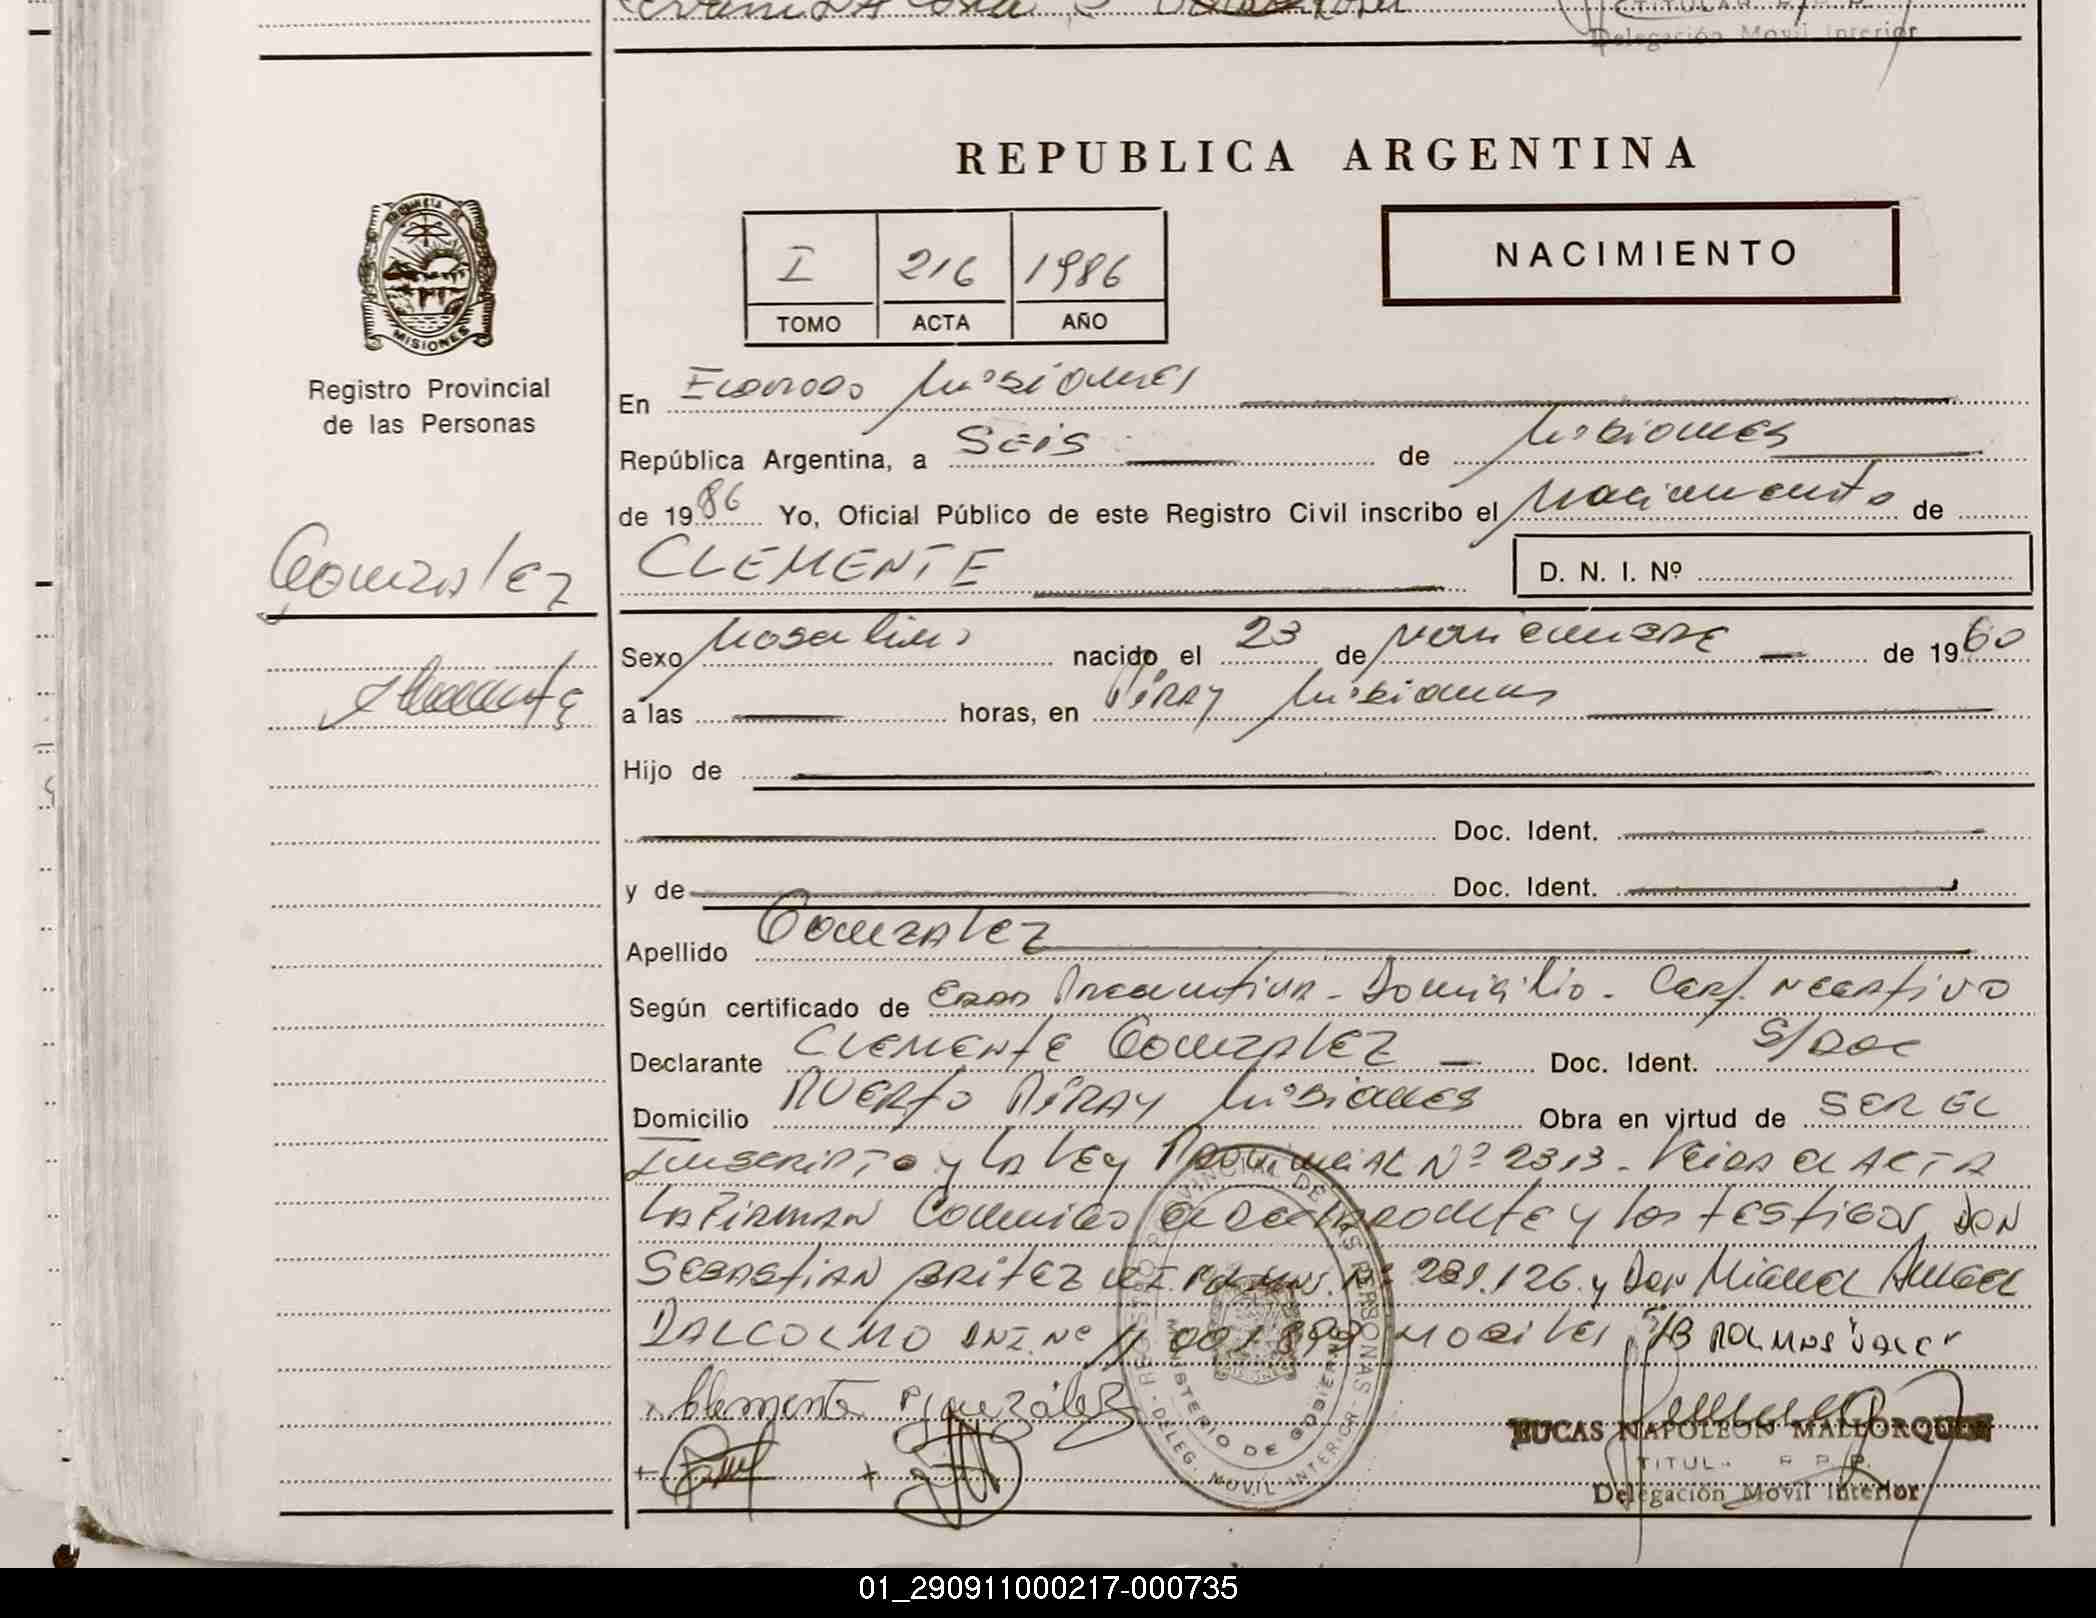 Delegación Movil Interior
REPUBLICA ARGENTINA
NACIMIENTO
I 216 1986
TOMO ACTA AÑO
PROVINCIA DE
MISIONES
Registro Provincial
de las Personas
Gonzalez
Clemente
En Eldorado Misiones
República Argentina, a SEIS de Misiones
de 1986 Yo, Oficial Público de este Registro Civil inscribo el Nacimiento de
CLEMENTE
D. N. I. Nº
Sexo Masculino nacido el 23 de Noviembre de 1960
a las horas, en Piray Misiones
Hijo de
Doc. Ident.
y de Doc. Ident.
Apellido Gonzalez
Según certificado de Edad Presuntiva - Domicilio - Cert. negativo
Declarante Clemente Gonzalez Doc. Ident. S/Doc
Domicilio Puerto Piray Misiones Obra en virtud de SER EL
Inscripto y la Ley Provincial Nº 2313 - Leida el Acta
La Firman Conmigo el Declarante y los testigos Don
Sebastian Britez Nº 231.126 y Don Miguel Angel
Dalcolmo DNI. Nº
Clemente González
REGISTRO PROVINCIAL DE LAS PERSONAS
MINISTERIO DE GOBIERNO
DELEG. MOVIL INTERIOR
LUCAS NAPOLEON MALLORQUIN
TITUL R. P. P.
Delegación Movil Interior
01_290911000217-000735